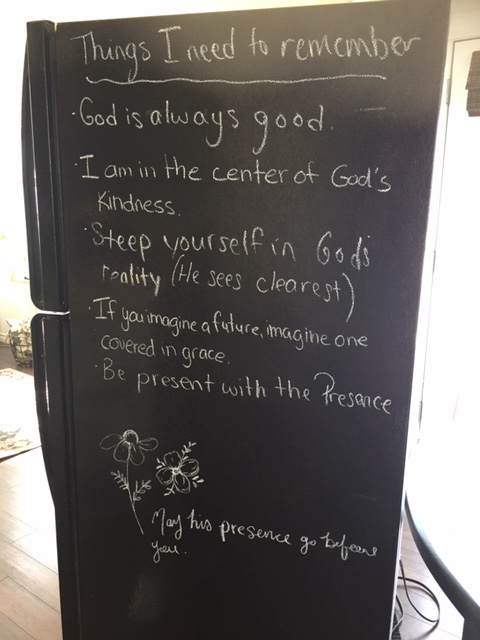 Things I need to remember
· God is always good.
· I am in the center of God's
Kindness.
· Steep yourself in God's
reality (He sees clearest)
· If you imagine a future, imagine one
covered in grace.
· Be present with the Presence
May his presence go before
you.